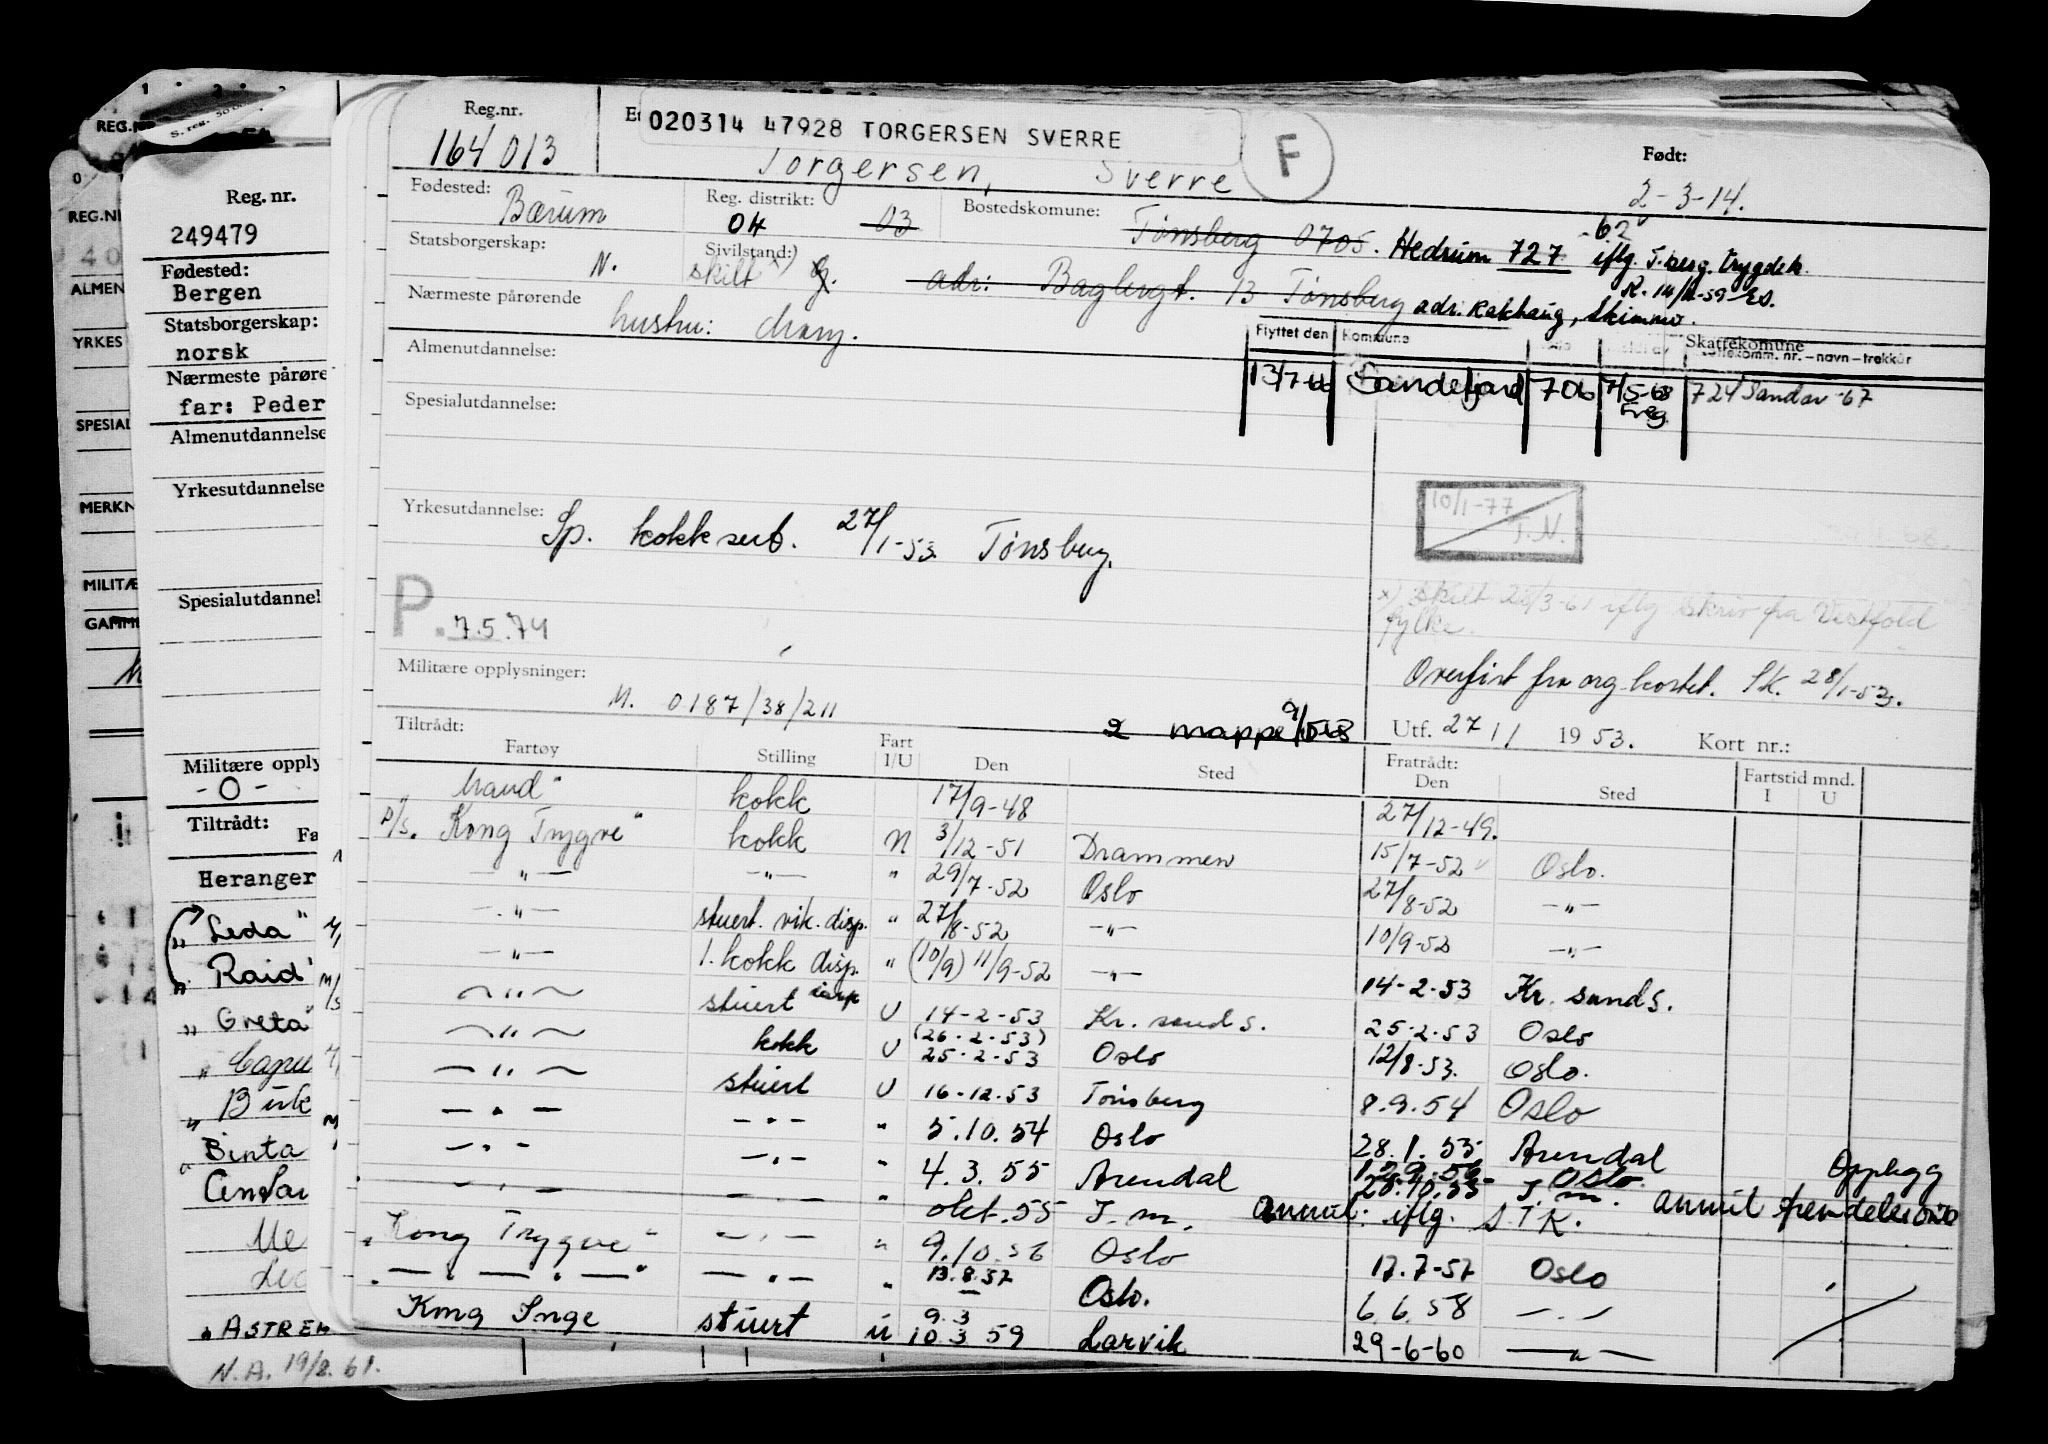 Reg.nr.
164013
020314 47928 TORGERSEN SVERRE
Torgersen, Sverre
F
Født:
2-3-14.
Fødested: Bærum
Reg. distrikt: 04 03
Bostedskomune: Tønsberg 0705. Hedrum 727
-62
iflg. T.berg. trygdek.
Statsborgerskap: N.
Sivilstand: skilt x) g.
adr: Baglergt. 13 Tønsberg adr.
Skimmo.
Nærmeste pårørende
hustru: Mary.
Almenutdannelse:
Flyttet den Kommune
Skattekomune
komm. nr. – navn – trekkår
Sandefjord 706 7/5-68 724 Sandar -67
Freg.
Spesialutdannelse:
Yrkesutdannelse: Sp. kokk sert. 27/1-53. Tønsberg.
10/1-77
T.N.
x) skilt 28/3-61 iflg skriv fra Vestfold
fylke.
P. 7.5.74
Overført fra org kortet. SK. 28/1-53.
Militære opplysninger:
M. 0187/38/211
2 mappe
Utf. 27/1 1953. Kort nr.:
Tiltrådt:
Fartøy Stilling Fart I/U Den Sted
Fratrådt:
Den Sted Fartstid mnd.
I U
"Maud" kokk 17/9-48 27/12-49.
D/S. "Kong Trygve" kokk N 3/12-51 Drammen 15/7-52 Oslo.
—"— —"— " 29/7-52 Oslo 27/8-52 —"—
—"— stuert. vik. disp. " 27/8-52 —"— 10/9-52 —"—
—"— 1. kokk disp. " (10/9) 11/9-52 —"— 14-2-53 Kr. sand S.
—"— stuert U 14-2-53 Kr. sand S. 25-2-53 Oslo
(26.2.53)
—"— kokk U 25-2-53 Oslo 12/8-53. Oslo.
—"— stuert U 16-12-53 Tønsberg 8.9.54 Oslo
—"— —"— " 5.10.54 Oslo 28.1.55 Arendal
—"— —"— " 4.3.55 Arendal Oslo Opplegg
28.10.55 T.m.
—"— —"— " okt.55 T.m. annul. iflg. STK. annul
"Kong Trygve" —"— " 9.10.56 Oslo 17.7-57 Oslo
—"— —"— " 13.8.57 Oslo. 6.6.58 —"—
9.3
Kong Inge stuert U 10.3 59 Larvik 29-6-60 —"—
Reg. nr.
249479
Fødested:
Bergen
Statsborgerskap:
norsk
Nærmeste pårøre
far: Peder
Almenutdannelse
Yrkesutdannelse
Spesialutdannel
Militære opply
- O -
Tiltrådt:
Fa
Heranger
"Leda"
"Raid"
"Greta"
"Binta
ASTREA
N.A. 19/8.61.
REG.NR
REG.NR
40
ALMEN
YRKES
SPESIAL
MERKN
MILITÆ
GAMM